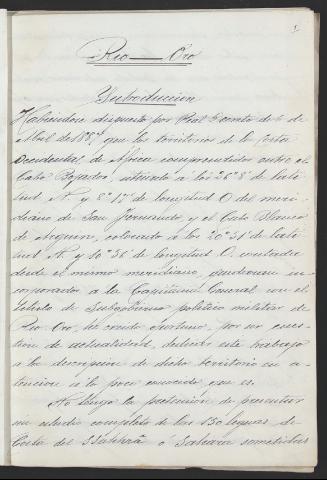 1
Rio Oro
Introduccion
Habiendose dispuesto por Real Decreto de 6 de
Abril de 1887 que los territorios de la Costa
Occidental de Africa comprendidos entre el
Cabo Bojador, situado á los 26º 8' de lati
tud N. y 8º 17' de longitud O del meri
diano de San Fernando, y el Cabo Blanco
de Arguin, colocado á los 20º 51' de lati
tud N. y 10º 56' de longitud O. contados
desde el mismo meridiano, quedaran in
corporados a la Capitania General con el
titulo de Subgobierno politico militar de
Rio Oro, he creido oportuno, por ser cues
tion de actualidad, dedicar este trabajo
a la descripcion de dicho territorio en a-
tencion a lo poco conocido que es.
No tengo la pretension de presentar
un estudio completo de las 150 leguas de
Costa del Ssahhrâ ó Sahara sometidas